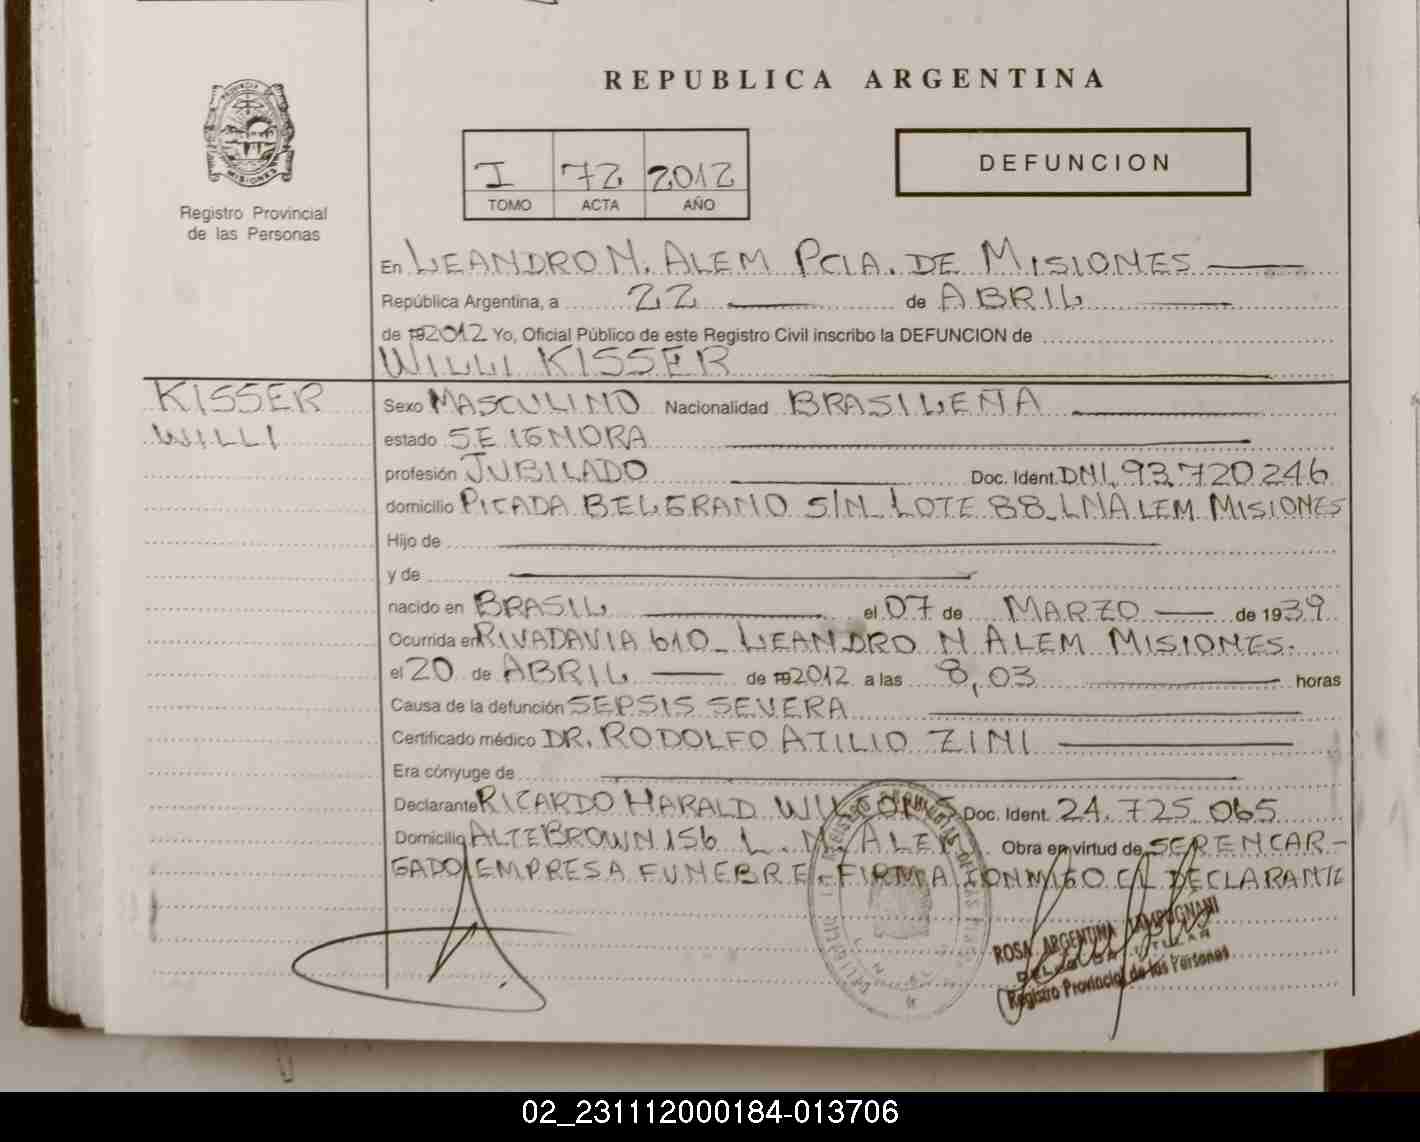 REPUBLICA ARGENTINA
PROVINCIA
MISIONES
Registro Provincial
de las Personas
I 72 2012
TOMO ACTA AÑO
DEFUNCION
En LEANDRO N. ALEM PCIA. DE MISIONES
República Argentina, a 22 de ABRIL
de 192012 Yo, Oficial Público de este Registro Civil inscribo la DEFUNCION de
WILLI KISSER
KISSER
WILLI
Sexo MASCULINO Nacionalidad BRASILEÑA
estado SE IGNORA
profesión JUBILADO Doc. Ident. DNI. 93.720.246
domicilio PICADA BELGRANO S/N_ LOTE 88_LNALEM MISIONES
Hijo de
y de
nacido en BRASIL el 07 de MARZO de 1939
Ocurrida en RIVADAVIA 610_ LEANDRO N ALEM MISIONES.
el 20 de ABRIL de 192012 a las 8,03 horas
Causa de la defunción SEPSIS SEVERA
Certificado médico DR. RODOLFO ATILIO ZINI
Era cónyuge de
Declarante RICARDO HARALD Doc. Ident. 24.725.065
Domicilio ALTEBROWN 156 L. N. ALEM. Obra en virtud de SER ENCAR-
GADO EMPRESA FUNEBRE. FIRMA CONMIGO EL DECLARANTE
ROSA ARGENTINA LAMPUGNANI
DELEGADA TITULAR
Registro Provincial de las Personas
02_231112000184-013706